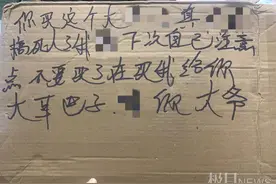 你取这个大 真
搞死人了我 下次自己注意
点 不要买了在取我给你
大耳巴子 你大爷
极目NEWS